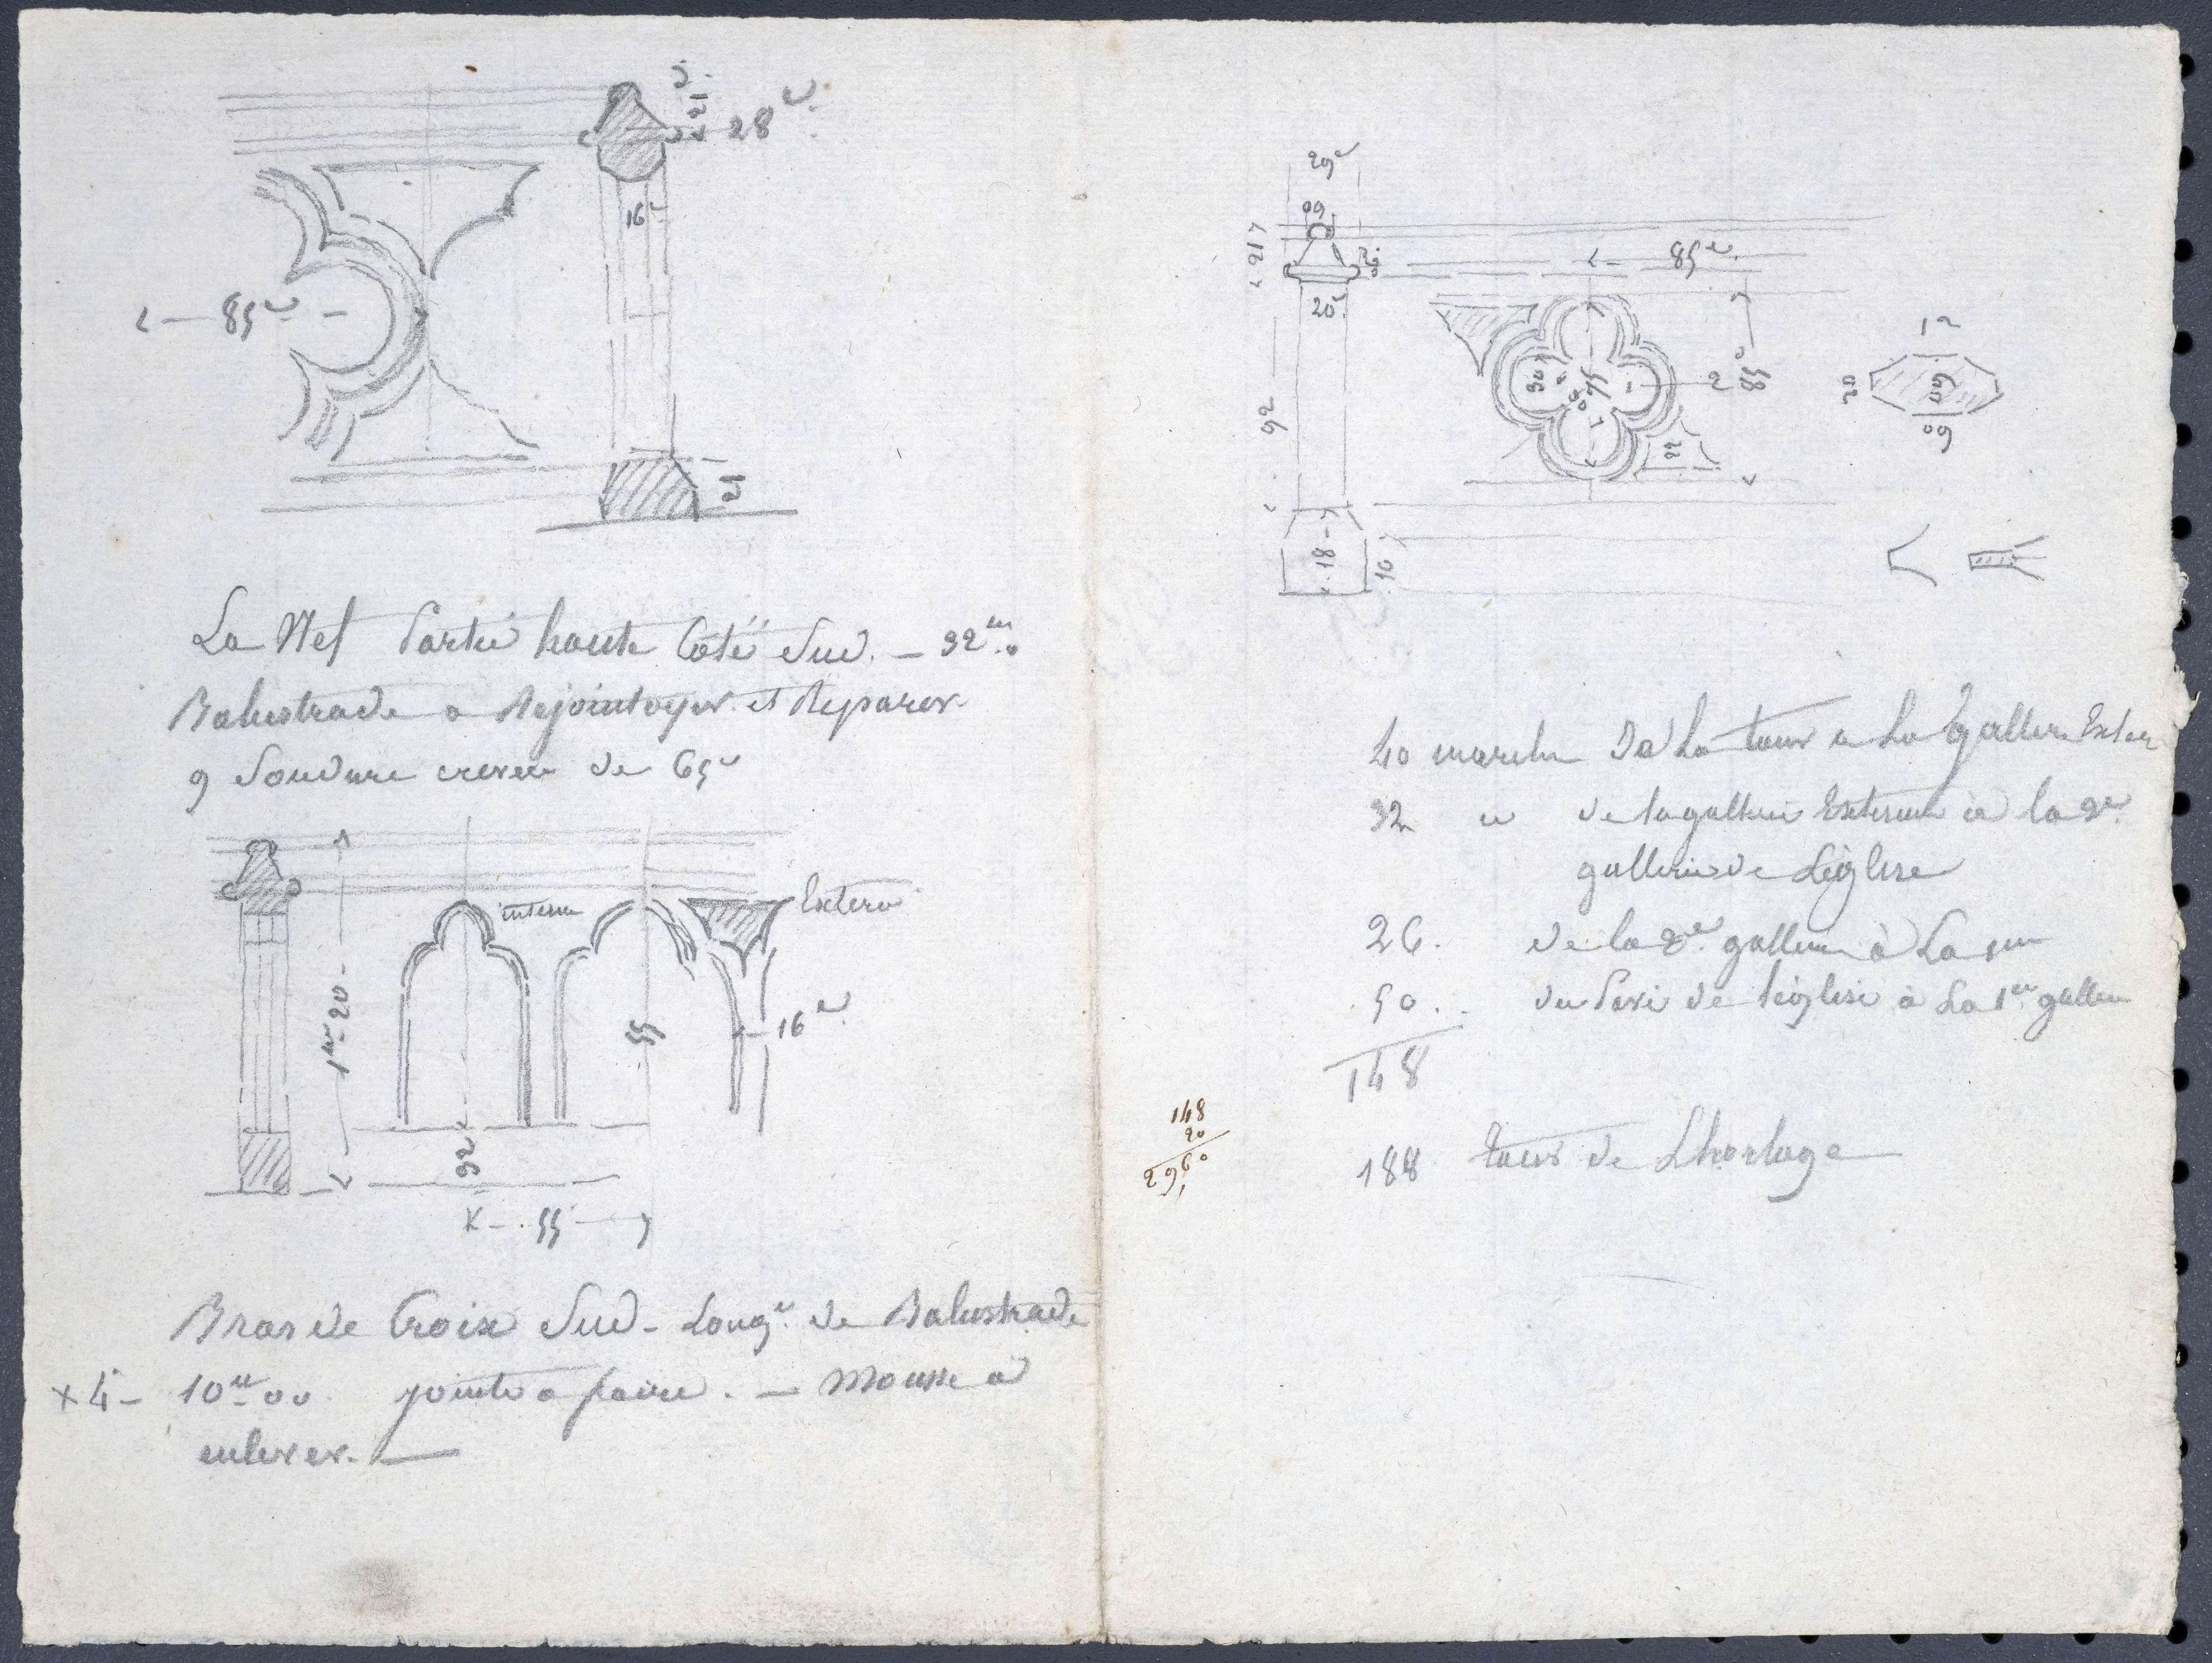 28c
16c
85c
21
La Nef Partie haute Coté Sud. — 32m.
Balustrade a Rejointoyer et Reparer
9 Soudure crevee de 65c
interne
Extern
1m 20
55
16c
32
55
Bras de Croix Sud - Longr de Balustrade
x 4 - 10m 00 joints a faire. — Mousse a
enlever.
29c
09
217
85c
20c
92
30
75
85c
22
18
16
12
20
09
40 marche De La tour a La Gallerie Exter
32 de la gallerie Externe à la 2e
gallerie de Léglise
26. de la 2e gallerie à La 1ere
50.. du Pavé de l'église a La 1ere gallerie
148
148
20
2960
188 tour de Lhorloge